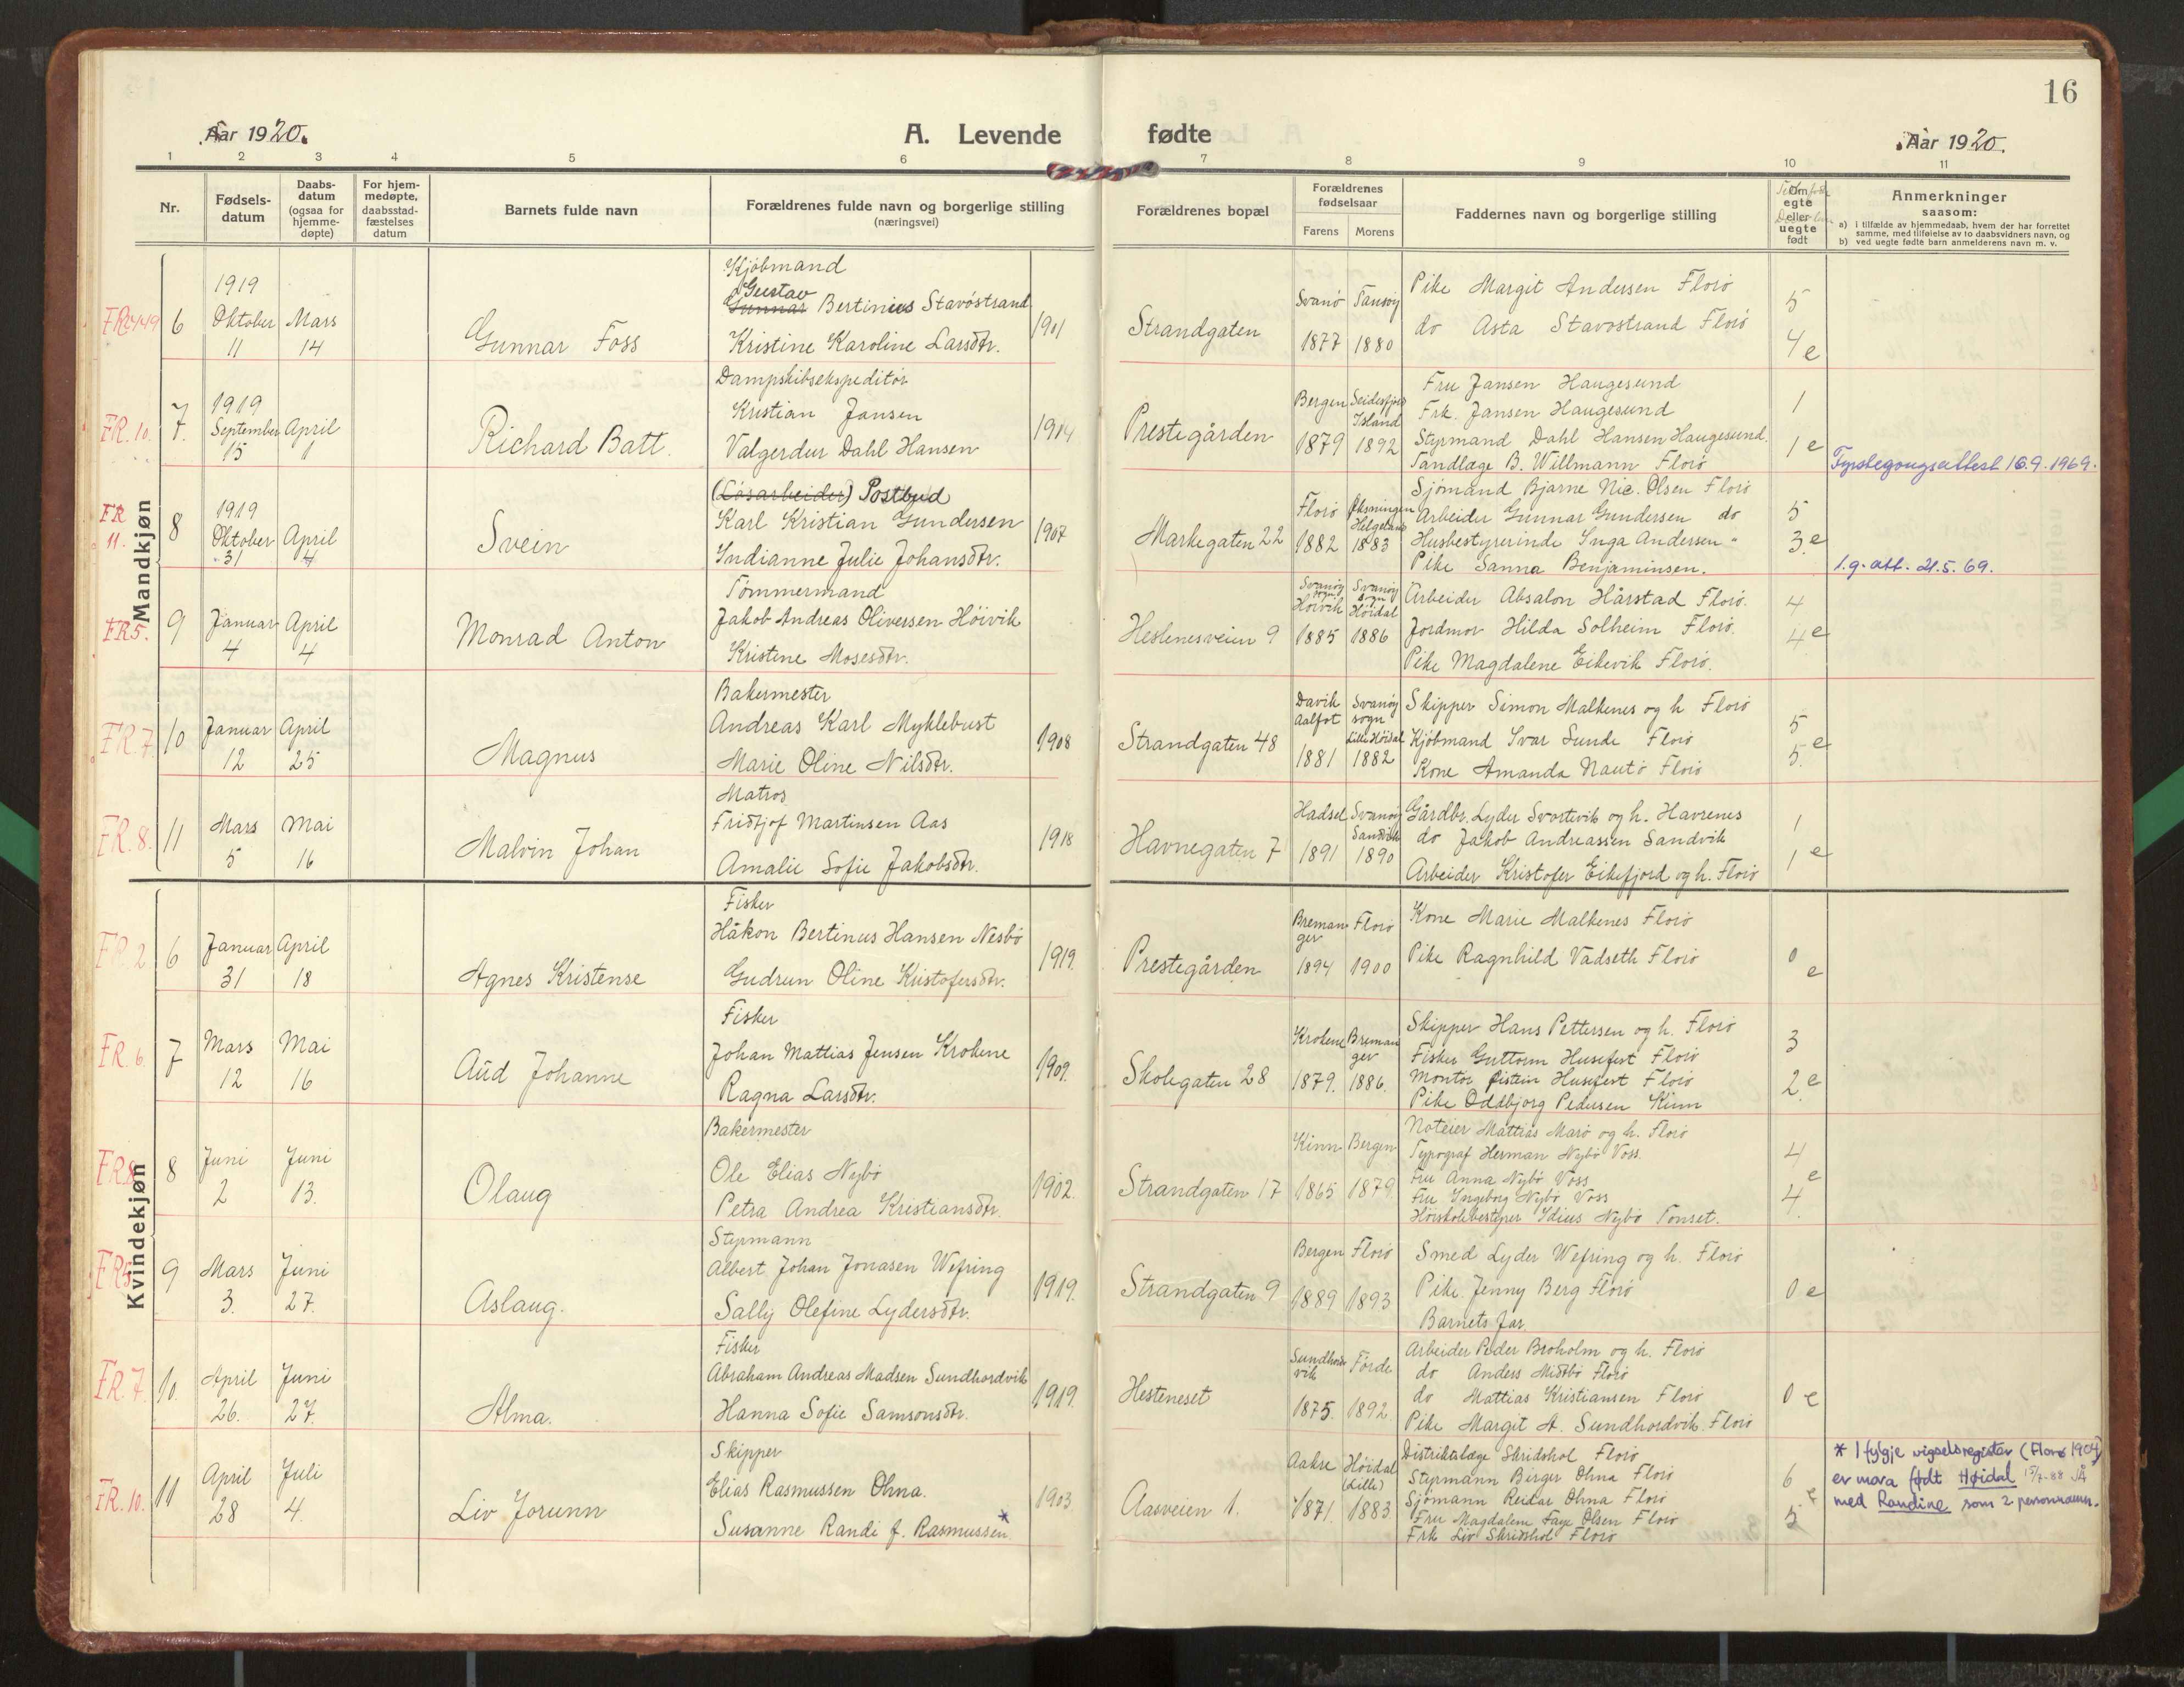 16
Aar 1920.
A. Levende fødte
Aar 1920.
1 2 3 4 5 6 7 8 9 10 11
Nr.
Fødsels-datum
Daabs-datum (ogsaa for hjemme-døpte)
For hjem-medøpte, daabsstad-fæstelses datum
Barnets fulde navn
Forældrenes fulde navn og borgerlige stilling (næringsvei)
Forældrenes bopæl
Forældrenes fødselsaar
Farens Morens
Faddernes navn og borgerlige stilling
Om egte eller uegte født
Anmerkninger saasom:
a) i tilfælde av hjemmedaab, hvem der har forrettet samme, med tilføielse av to daabsvidners navn, og
b) ved uegte fødte barn anmelderens navn m. v.
Mandkjøn
6
1919 Oktober 11
Mars 14
Gunnar Foss
Kjöbmand
Gustav
Gunnar Bertinius Stavöstrand
Kristine Karoline Larsdtr.
1901
Strandgaten
Svanö 1877
Tansöy 1880
Pike Margit Andersen Florö
do Asta Stavöstrand Florö
5
4 e
FR. 10.
7.
1919 September 15
April 1
Richard Batt.
Dampskibsekspeditör
Kristian Jansen
Valgerdur Dahl Hansen
1914
Prestegården
Bergen 1879
Seidesfjord Island 1892
Fru Jansen Haugesund
Frk. Jansen Haugesund
Styrmand Dahl Hansen Haugesund.
Tandlæge B. Willmann Florö
1
1 e
Fyrstegongsattest 16.9.1969.
FR 11.
8
1919 Oktober 31
April 4
Svein
(Lösarbeider) Postbud
Karl Kristian Gundersen
Indianne Julie Johansdtr.
1907
Markegaten 22
Florö 1882
Helgeland 1883
Sjömand Bjarne Nic. Olsen Florö
Arbeider Gunnar Gundersen do
Husbestyrerinde Inga Andersen "
Pike Sanna Benjaminsen.
5
3 e
1.g. att. 21.5.69.
FR 5.
9
Januar 4
April 4
Monrad Anton
Tömmermand
Jakob Andreas Oliversen Höivik
Kristine Mosesdtr.
Heslenesveien 9
Svanöy sogn Höivik 1885
Svanöy sogn Höidal 1886
Arbeider Absalon Hårstad Florö.
Jordmor Hilda Solheim Florö.
Pike Magdalene Eikevik Florö.
4
4 e
FR. 7
10
Januar 12
April 25
Magnus
Bakermester
Andreas Karl Myklebust
Marie Oline Nilsdtr.
1908
Strandgaten 48
Davik Aalfot 1881
Svanöy sogn Lille Höidal 1882
Skipper Simon Malkenes og h Florö
Kjöbmand Ivar Sunde Florö
Kone Amanda Nautö Florö
5
5. e
FR. 8.
11
Mars 5
Mai 16
Malvin Johan
Matros
Fridtjof Martinsen Aas
Amalie Sofie Jakobsdtr.
1918
Havnegaten 7
Hadsel 1891
Svanöy Sandvik 1890
Gårdbr. Lyder Svortevik og h. Havrenes
do Jakob Andreassen Sandvik
Arbeider Kristofer Eikefjord og h. Florö
1
1 e
Kvindekjøn
FR. 2
6
Januar 31
April 18
Agnes Kristense
Fisker
Håkon Bertinus Hansen Nesbö
Gudrun Oline Kristofersdtr.
1919.
Prestegården
Bremanger 1894
Florö 1900
Kone Marie Malkenes Florö
Pike Ragnhild Vadseth Florö
0 e
FR. 6.
7
Mars 12
Mai 16
Aud Johanne
Fisker
Johan Mattias Jensen Krokene
Ragna Larsdtr.
1909.
Skolegaten 28
Krokene 1879.
Bremanger 1886.
Skipper Hans Pettersen og h. Florö
Fisker Guttorm Husefest Florö
Montör Øistein Husefest Florö
Pike Oddbjorg Pedersen Kinn
3
2. e
FR 8
8
Juni 2
Juni 13.
Olaug
Bakermester
Ole Elias Nybö
Petra Andrea Kristiansdtr.
1902.
Strandgaten 17
Kinn 1865
Bergen 1879.
Noteier Mattias Marö og h. Florö
Typograf Herman Nybö Voss.
Fru Anna Nybö Voss
Fru Ingeborg Nybö Voss
Höiskolebestyrer Idius Nybö Tonset.
4
4. e
FR 5
9
Mars 3.
Juni 27.
Aslaug.
Styrmann
Albert Johan Jonasen Wefring
Sally Olefine Lydersdtr.
1919.
Strandgaten 9
Bergen 1889
Florö 1893
Smed Lyder Wefring og h. Florö
Pike. Jenny Berg Florö
Barnets far
0 e
FR. 7.
10.
April 26.
Juni 27.
Alma.
Fisker
Abraham Andreas Madsen Sundhordvik
Hanna Sofie Samsonsdtr.
1919.
Hesteneset
Sundhordvik 1875.
Förde 1892.
Arbeider Peder Broholm og h. Florö
do Anders Midtbö Florö
do Mattias Kristiansen Florö
Pike Margit A. Sundhordvik. Florö
0 e
FR. 10.
11
April 28
Juli 4.
Liv Jorunn
Skipper
Elias Rasmussen Ohna.
Susanne Randi f. Rasmussen. *
1903.
Aasveien 1.
Aakre 1871.
Höidal (Lille) 1883
Distriktslæge Skridshol Florö
Styrmann Birger Ohna Florö
Sjömann Reidar Ohna Florö
Fru Magdalene Faye Olsen Florö
Frk Liv Skridshol Florö
6
5 e
* I fylgje vigselsregister (Florø 1904)
er mora født Høidal 15/7-88 JÅ
med Randine som 2 personnamn.